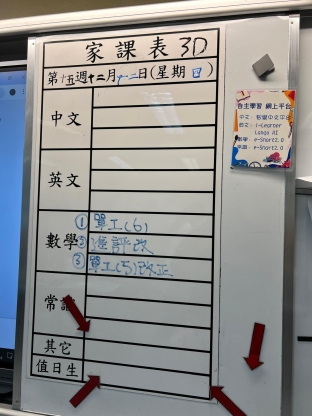 家課表 3D
第十五週十二月十二日(星期四)
中文
英文
數學
① 單工(6)
② 進評改
③ 單工(5)改正
常識
其它
值日生
自主學習 網上平台
i-Learner
e-Smart2.0
e-Smart2.0